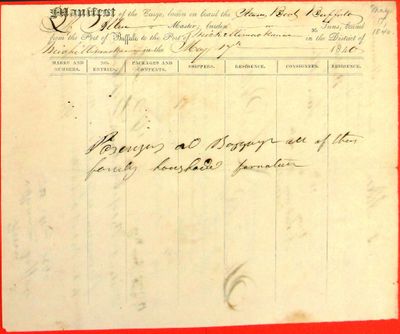 Manifest of the Cargo, taken on board the Steam Boat Buffalo
Master, burden Tons, bound
from the Port of Buffalo to the Port of Michilimackinac in the District of
Michilimackinac in the May 17th 1840
May 17 1840
MARKS AND NUMBERS. NO. ENTRIES. PACKAGES AND CONTENTS. SHIPPERS. RESIDENCE. CONSIGNEES. RESIDENCE.
Pasengers and Baggage all of them
family houshold furnature